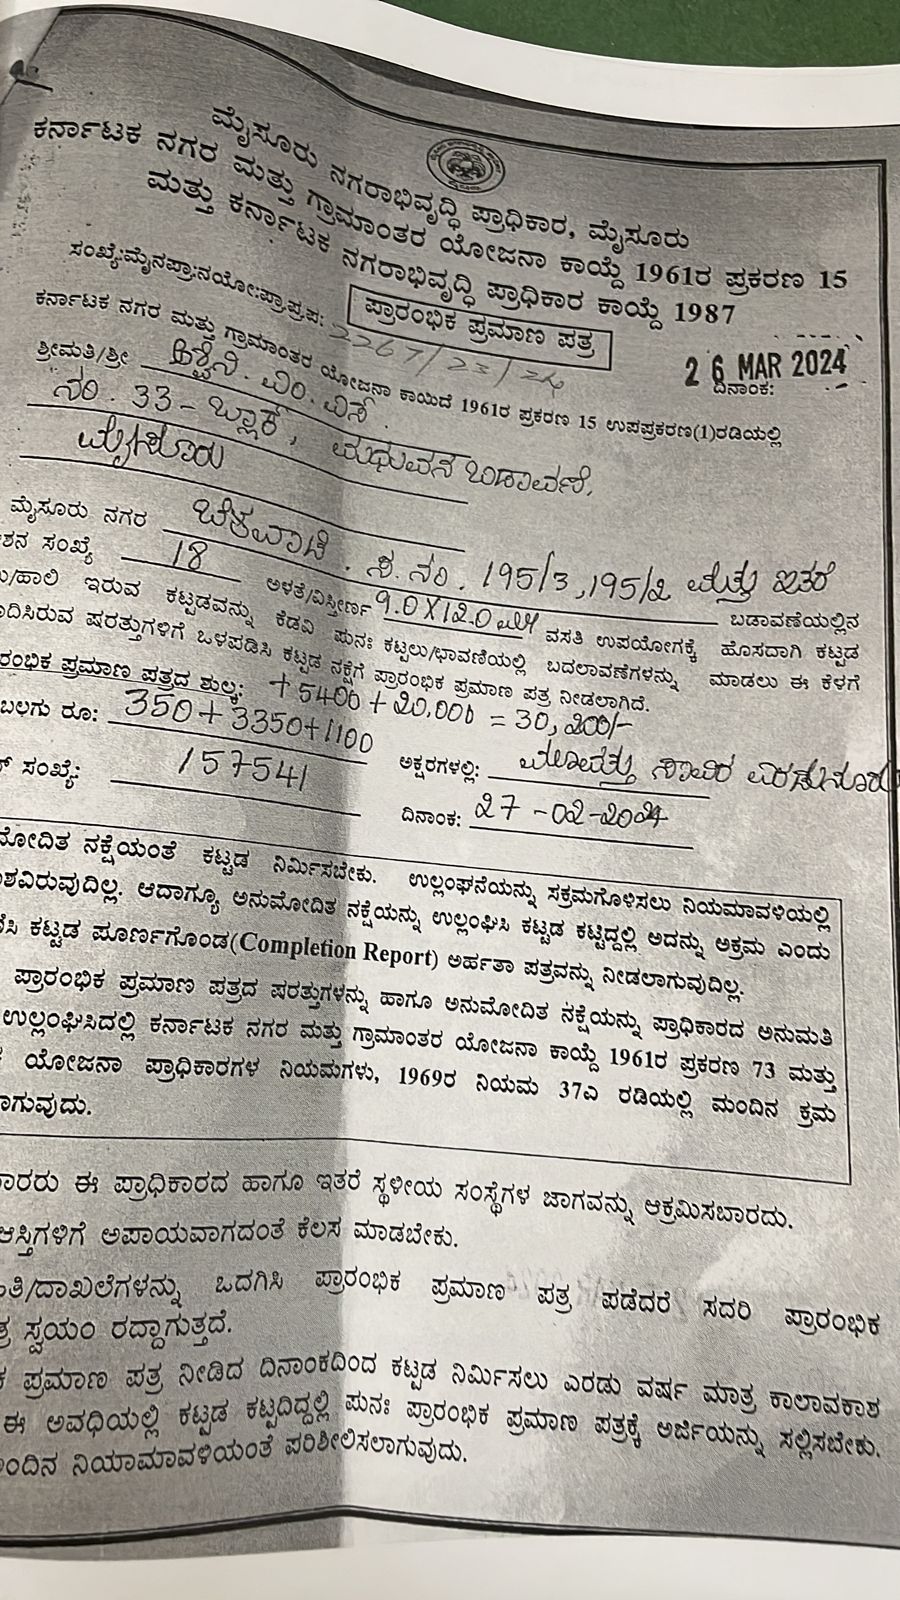 ಮೈಸೂರು ನಗರಾಭಿವೃದ್ಧಿ ಪ್ರಾಧಿಕಾರ, ಮೈಸೂರು
ಕರ್ನಾಟಕ ನಗರ ಮತ್ತು ಗ್ರಾಮಾಂತರ ಯೋಜನಾ ಕಾಯ್ದೆ 1961ರ ಪ್ರಕರಣ 15
ಮತ್ತು ಕರ್ನಾಟಕ ನಗರಾಭಿವೃದ್ಧಿ ಪ್ರಾಧಿಕಾರ ಕಾಯ್ದೆ 1987
ಪ್ರಾರಂಭಿಕ ಪ್ರಮಾಣ ಪತ್ರ
ಸಂಖ್ಯೆ:ಮೈನಪ್ರಾ:ನಯೋ:ಪ್ರಾ.ಪ್ರ.ಪ: 2267/23/24
26 MAR 2024
ದಿನಾಂಕ:
ಕರ್ನಾಟಕ ನಗರ ಮತ್ತು ಗ್ರಾಮಾಂತರ ಯೋಜನಾ ಕಾಯಿದೆ 1961ರ ಪ್ರಕರಣ 15 ಉಪಪ್ರಕರಣ(1)ರಡಿಯಲ್ಲಿ
ಶ್ರೀಮತಿ/ಶ್ರೀ ಅಶ್ವಿನಿ. ಎಂ. ಎಸ್
ನಂ. 33-ಬ್ಲಾಕ್, ಮಧುವನ ಬಡಾವಣೆ,
ಮೈಸೂರು
ಮೈಸೂರು ನಗರ ಬೆಳವಾಟಿ. ಸ.ನಂ. 195/3, 195/2 ಮತ್ತು ಇತರೆ
ಬಡಾವಣೆಯಲ್ಲಿನ
ಶನ ಸಂಖ್ಯೆ 18 ಅಳತೆ/ವಿಸ್ತೀರ್ಣ 9.0X12.0 ಮೀ ವಸತಿ ಉಪಯೋಗಕ್ಕೆ ಹೊಸದಾಗಿ ಕಟ್ಟಡ
/ಹಾಲಿ ಇರುವ ಕಟ್ಟಡವನ್ನು ಕೆಡವಿ ಪುನಃ ಕಟ್ಟಲು/ಛಾವಣಿಯಲ್ಲಿ ಬದಲಾವಣೆಗಳನ್ನು ಮಾಡಲು ಈ ಕೆಳಗೆ
ದಿಸಿರುವ ಷರತ್ತುಗಳಿಗೆ ಒಳಪಡಿಸಿ ಕಟ್ಟಡ ನಕ್ಷೆಗೆ ಪ್ರಾರಂಭಿಕ ಪ್ರಮಾಣ ಪತ್ರ ನೀಡಲಾಗಿದೆ.
ರಂಭಿಕ ಪ್ರಮಾಣ ಪತ್ರದ ಶುಲ್ಕ: +5400+20,000 = 30,200/-
ಬಲಗು ರೂ: 350+3350+1100 ಅಕ್ಷರಗಳಲ್ಲಿ: ಮೂವತ್ತು ಸಾವಿರ ಎರಡುನೂರು
ಸಂಖ್ಯೆ: 157541 ದಿನಾಂಕ: 27-02-2024
ಮೋದಿತ ನಕ್ಷೆಯಂತೆ ಕಟ್ಟಡ ನಿರ್ಮಿಸಬೇಕು. ಉಲ್ಲಂಘನೆಯನ್ನು ಸಕ್ರಮಗೊಳಿಸಲು ನಿಯಮಾವಳಿಯಲ್ಲಿ
ಶವಿರುವುದಿಲ್ಲ. ಆದಾಗ್ಯೂ ಅನುಮೋದಿತ ನಕ್ಷೆಯನ್ನು ಉಲ್ಲಂಘಿಸಿ ಕಟ್ಟಡ ಕಟ್ಟಿದ್ದಲ್ಲಿ ಅದನ್ನು ಅಕ್ರಮ ಎಂದು
ಸಿ ಕಟ್ಟಡ ಪೂರ್ಣಗೊಂಡ(Completion Report) ಅರ್ಹತಾ ಪತ್ರವನ್ನು ನೀಡಲಾಗುವುದಿಲ್ಲ.
ಪ್ರಾರಂಭಿಕ ಪ್ರಮಾಣ ಪತ್ರದ ಷರತ್ತುಗಳನ್ನು ಹಾಗೂ ಅನುಮೋದಿತ ನಕ್ಷೆಯನ್ನು ಪ್ರಾಧಿಕಾರದ ಅನುಮತಿ
ಉಲ್ಲಂಘಿಸಿದಲ್ಲಿ ಕರ್ನಾಟಕ ನಗರ ಮತ್ತು ಗ್ರಾಮಾಂತರ ಯೋಜನಾ ಕಾಯ್ದೆ 1961ರ ಪ್ರಕರಣ 73 ಮತ್ತು
ಯೋಜನಾ ಪ್ರಾಧಿಕಾರಗಳ ನಿಯಮಗಳು, 1969ರ ನಿಯಮ 37ಎ ರಡಿಯಲ್ಲಿ ಮಂದಿನ ಕ್ರಮ
ಾಗುವುದು.
ಾರರು ಈ ಪ್ರಾಧಿಕಾರದ ಹಾಗೂ ಇತರೆ ಸ್ಥಳೀಯ ಸಂಸ್ಥೆಗಳ ಜಾಗವನ್ನು ಆಕ್ರಮಿಸಬಾರದು.
ಆಸ್ತಿಗಳಿಗೆ ಅಪಾಯವಾಗದಂತೆ ಕೆಲಸ ಮಾಡಬೇಕು.
ತಿ/ದಾಖಲೆಗಳನ್ನು ಒದಗಿಸಿ ಪ್ರಾರಂಭಿಕ ಪ್ರಮಾಣ ಪತ್ರ ಪಡೆದರೆ ಸದರಿ ಪ್ರಾರಂಭಿಕ
ತ್ರ ಸ್ವಯಂ ರದ್ದಾಗುತ್ತದೆ.
ಕ ಪ್ರಮಾಣ ಪತ್ರ ನೀಡಿದ ದಿನಾಂಕದಿಂದ ಕಟ್ಟಡ ನಿರ್ಮಿಸಲು ಎರಡು ವರ್ಷ ಮಾತ್ರ ಕಾಲಾವಕಾಶ
ಈ ಅವಧಿಯಲ್ಲಿ ಕಟ್ಟಡ ಕಟ್ಟದಿದ್ದಲ್ಲಿ ಪುನಃ ಪ್ರಾರಂಭಿಕ ಪ್ರಮಾಣ ಪತ್ರಕ್ಕೆ ಅರ್ಜಿಯನ್ನು ಸಲ್ಲಿಸಬೇಕು.
ಂದಿನ ನಿಯಾಮಾವಳಿಯಂತೆ ಪರಿಶೀಲಿಸಲಾಗುವುದು.